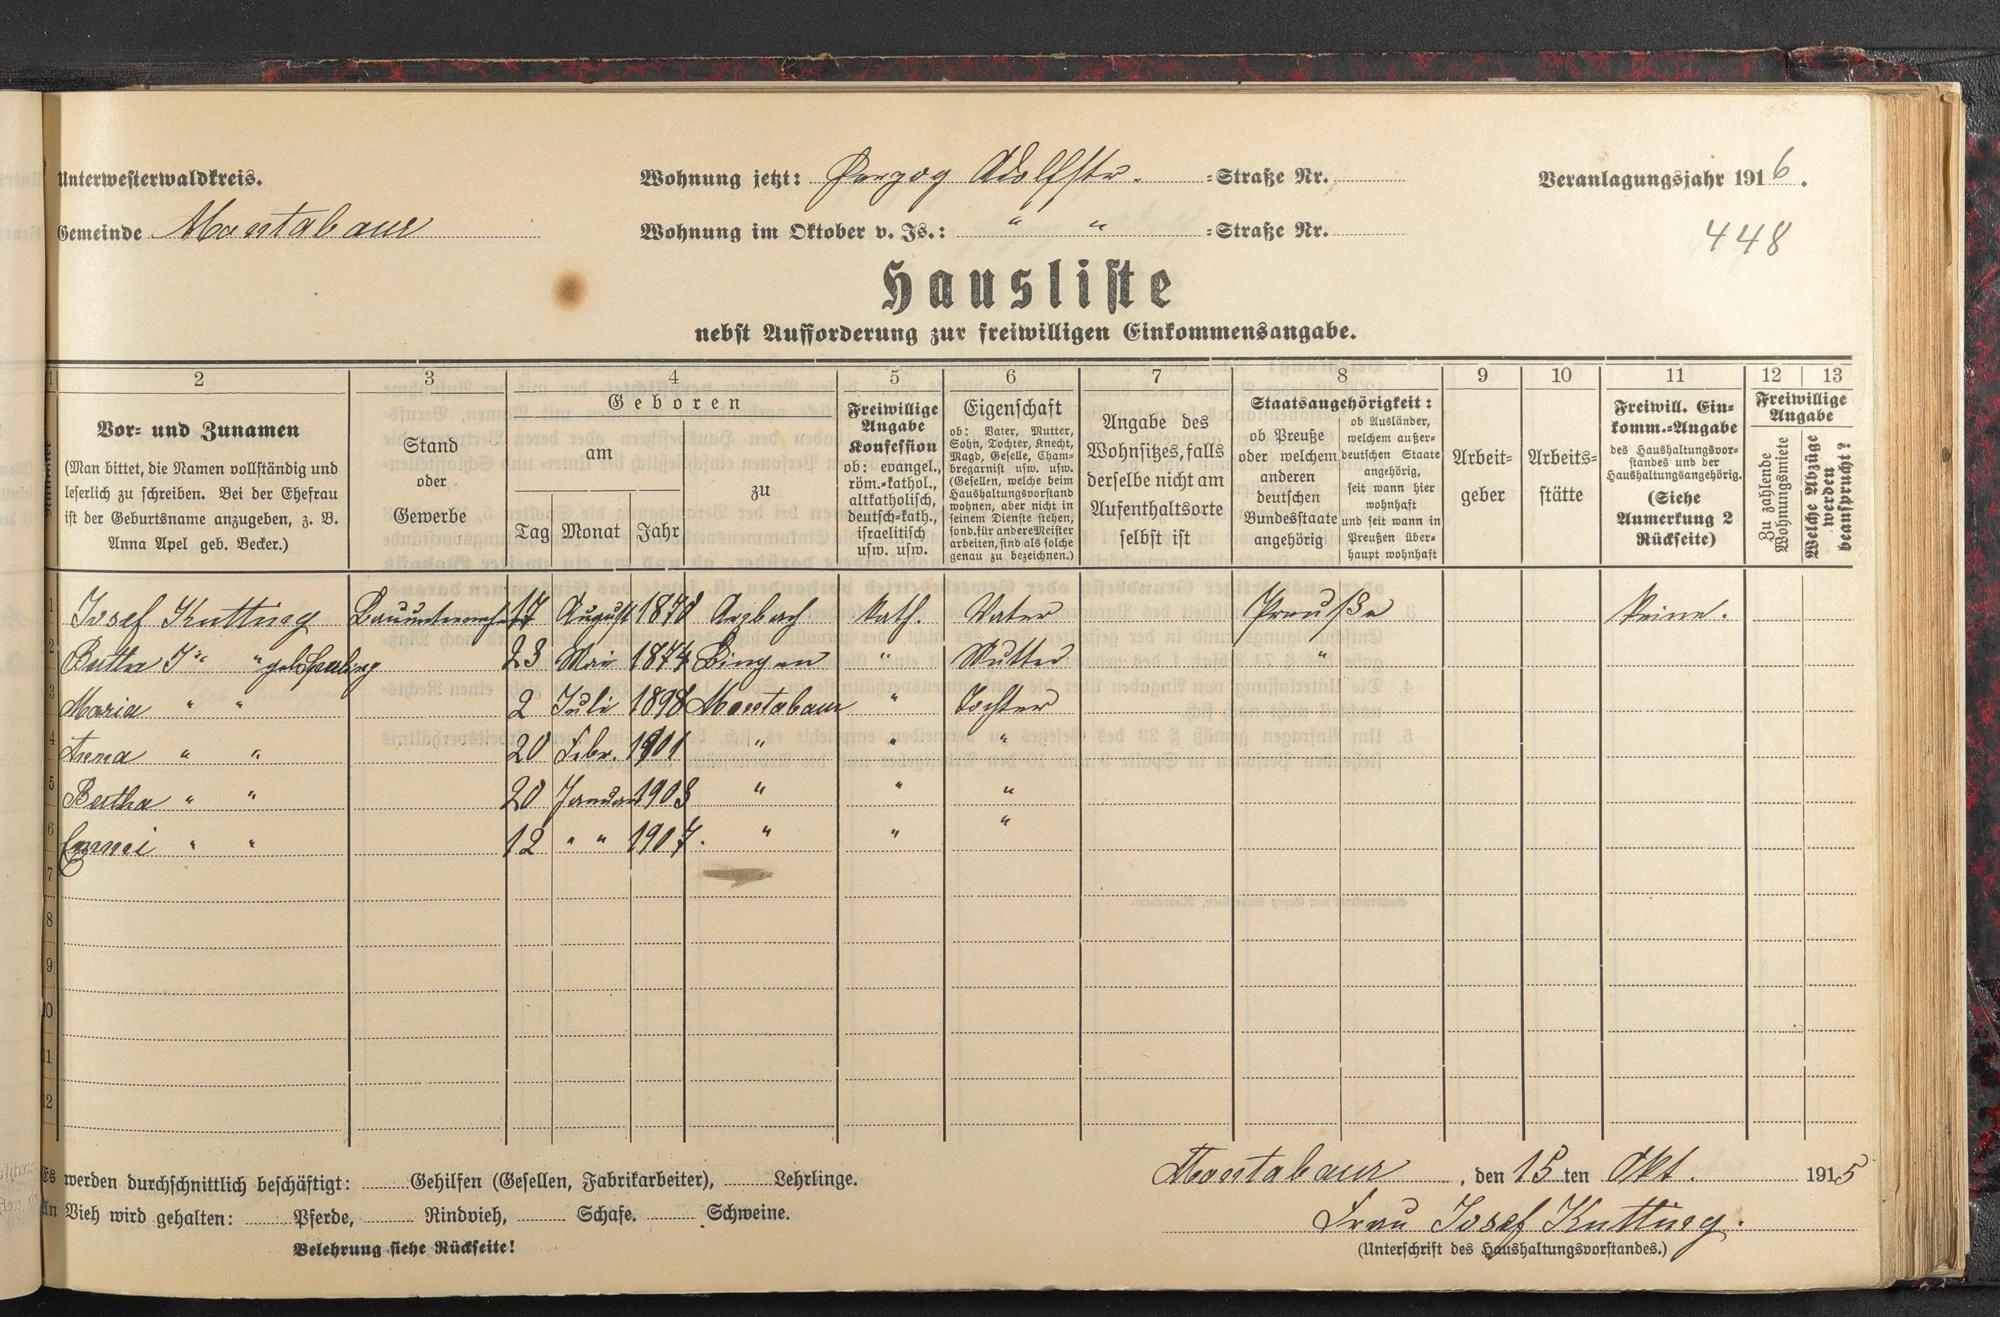 Unterwesterwaldkreis.
Wohnung jetzt: Herzog Adolfstr. =Straße Nr.
Veranlagungsjahr 1916.
Gemeinde Montabaur
Wohnung im Oktober v. Js.: " " =Straße Nr.
448
Hausliste
nebst Aufforderung zur freiwilligen Einkommensangabe.
1 2 3 4 5 6 7 8 9 10 11 12 13
Nummer
Vor- und Zunamen
(Man bittet, die Namen vollständig und
leserlich zu schreiben. Bei der Ehefrau
ist der Geburtsname anzugeben, z. B.
Anna Apel geb. Becker.)
Stand
oder
Gewerbe
Geboren
am
Tag Monat Jahr
zu
Freiwillige
Angabe
Konfession
ob: evangel.,
röm.-kathol.,
altkatholisch,
deutsch-kath.,
israelitisch
usw. usw.
Eigenschaft
ob: Vater, Mutter,
Sohn, Tochter, Knecht,
Magd, Geselle, Cham-
bregarnist usw. usw.
(Gesellen, welche beim
Haushaltungsvorstand
wohnen, aber nicht in
seinem Dienste stehen,
sond. für andere Meister
arbeiten, sind als solche
genau zu bezeichnen.)
Angabe des
Wohnsitzes, falls
derselbe nicht am
Aufenthaltsorte
selbst ist
Staatsangehörigkeit:
ob Preuße
oder welchem
anderen
deutschen
Bundesstaate
angehörig
ob Ausländer,
welchem außer-
deutschen Staate
angehörig,
seit wann hier
wohnhaft
und seit wann in
Preußen über-
haupt wohnhaft
Arbeit-
geber
Arbeits-
stätte
Freiwill. Ein-
komm.-Angabe
des Haushaltungsvor-
standes und der
Haushaltungsangehörig.
(Siehe
Anmerkung 2
Rückseite)
Freiwillige
Angabe
Zu zahlende
Wohnungsmiete
Welche Abzüge
werden
beansprucht?
1 Josef Kuttung 17 August 1870 Arzbach kath. Vater Preuße keine.
2 Bertha " " geb. 23 Mai 1874 Bingen " Mutter "
3 Maria " " 2 Juli 1898 Montabaur " Tochter
4 Anna " " 20 Febr. 1901 " " "
5 Bertha " " 20 Januar 1903 " " "
6 Emmi " " 12 " " 1907. " " "
7
8
9
10
11
12
Es werden durchschnittlich beschäftigt: Gehilfen (Gesellen, Fabrikarbeiter), Lehrlinge.
An Vieh wird gehalten: Pferde, Rindvieh, Schafe. Schweine.
Belehrung siehe Rückseite!
Montabaur, den 15 ten Okt. 1915
Frau Josef Kuttung.
(Unterschrift des Haushaltungsvorstandes.)